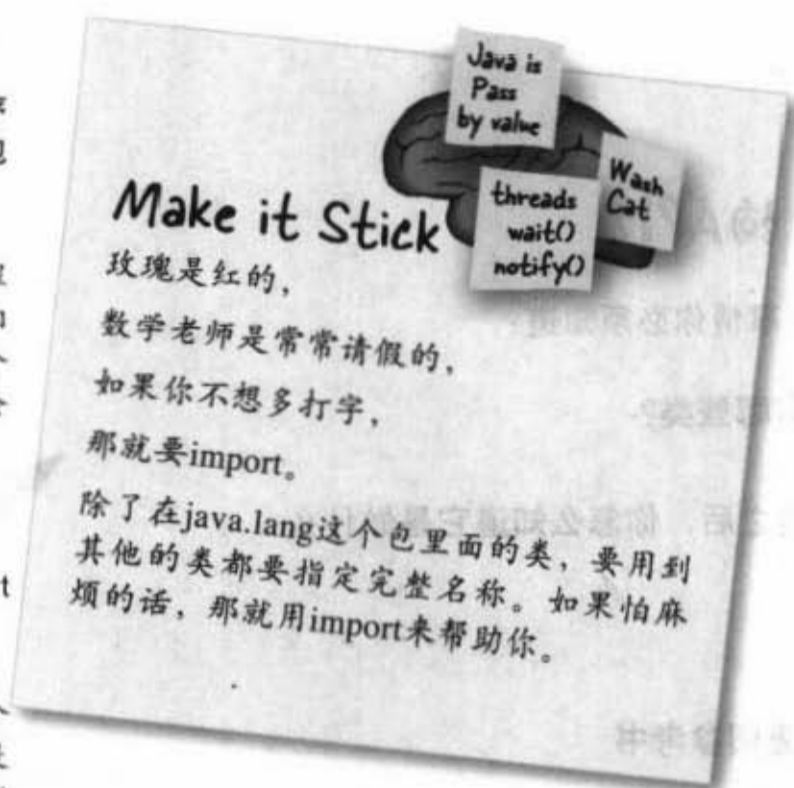 Java is
Pass
by value
Wash
Cat
threads
wait()
notify()
Make it Stick
玫瑰是红的，
数学老师是常常请假的，
如果你不想多打字，
那就要import。
除了在java.lang这个包里面的类，要用到
其他的类都要指定完整名称。如果怕麻
烦的话，那就用import来帮助你。